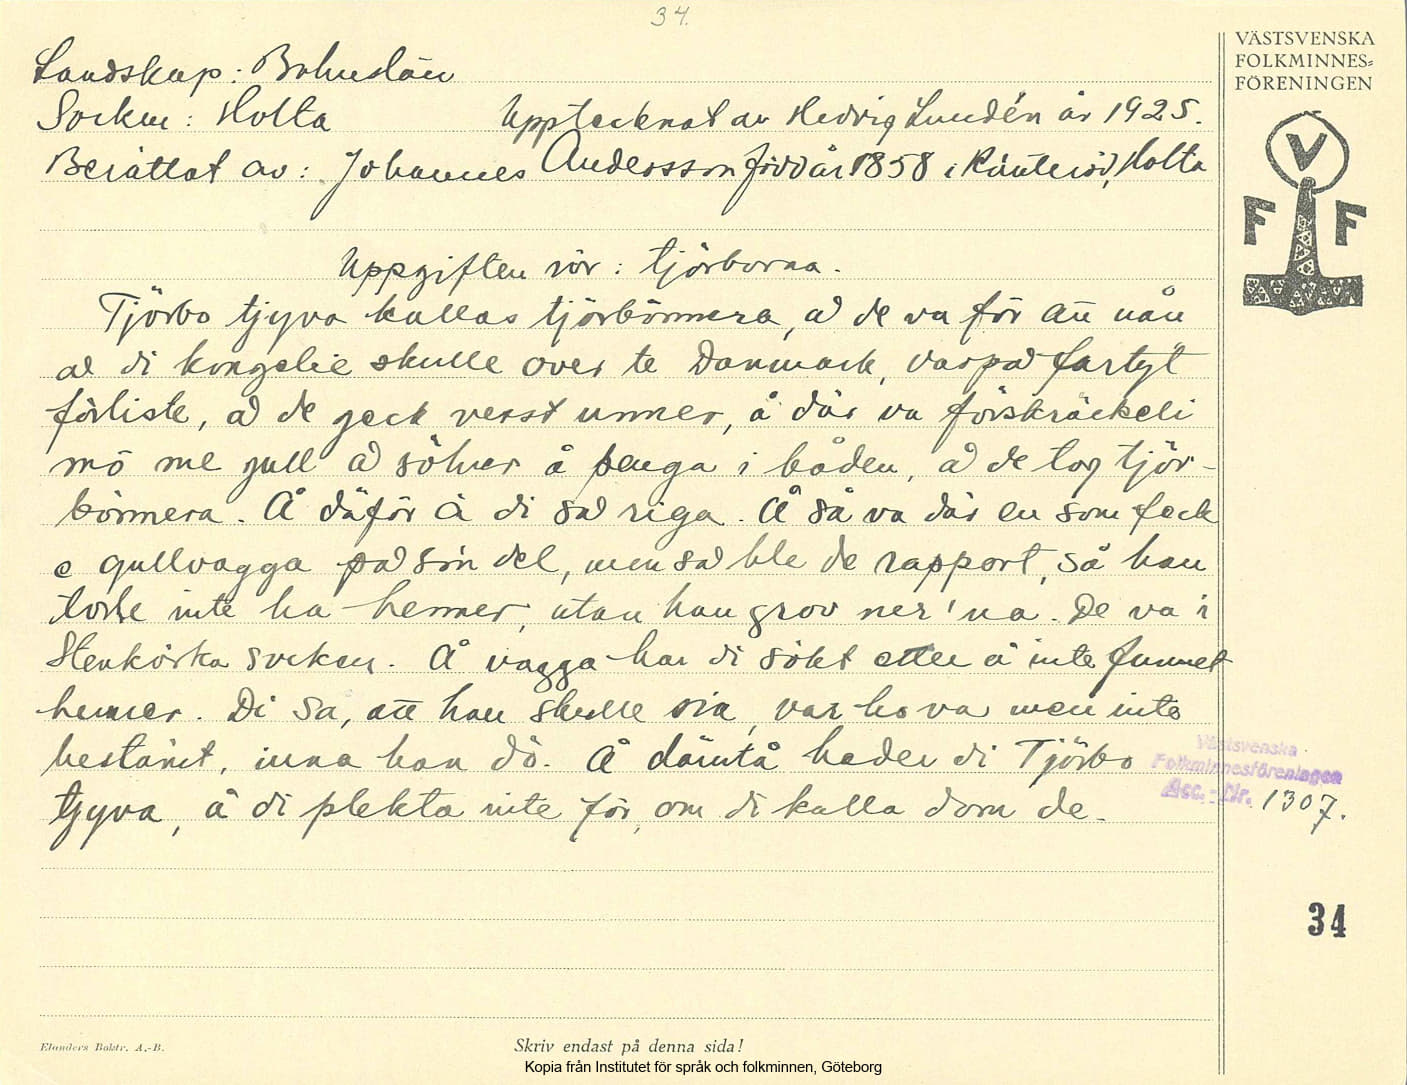 34.
VÄSTSVENSKA
FOLKMINNES=
FÖRENINGEN
V
F F
Landskap: Bohuslän
Socken: Holta Upptecknat av Hedvig Lundén år 1925.
Berättat av: Johannes Andersson född år 1858 i Ränteröd, Holta
Uppgiften rör: tjörborna.
Tjörbo tjyva kallas tjörbönnera, ad de va för att nån
ad di kongelie skulle over te Danmark, varpå fartyt
förliste, ad de geck verst unner, å där va förskräckeli
mö me gull ad sölver å penga i båden, ad de tog tjör-
bönnera. Å däför ä di sad riga. Å så va där en som feck
e gullvagga pad sin del, men sad ble de rapport, så han
torse inte ha henner, utan han grov ner'na. De va i
Stenkörka socken. Å vagga har di sökt etter å inte funnet
henner. Di sa, att han skulle sia, var ho va men inte
bestämt, inna han dö. Å dämtå heder di Tjörbo
tjyva, å di plekta inte för, om di kalla dom de.
Västsvenska
Folkminnesföreningen
Acc.-Nr. 1307.
34
Elanders Boktr. A.-B.
Skriv endast på denna sida!
Kopia från Institutet för språk och folkminnen, Göteborg